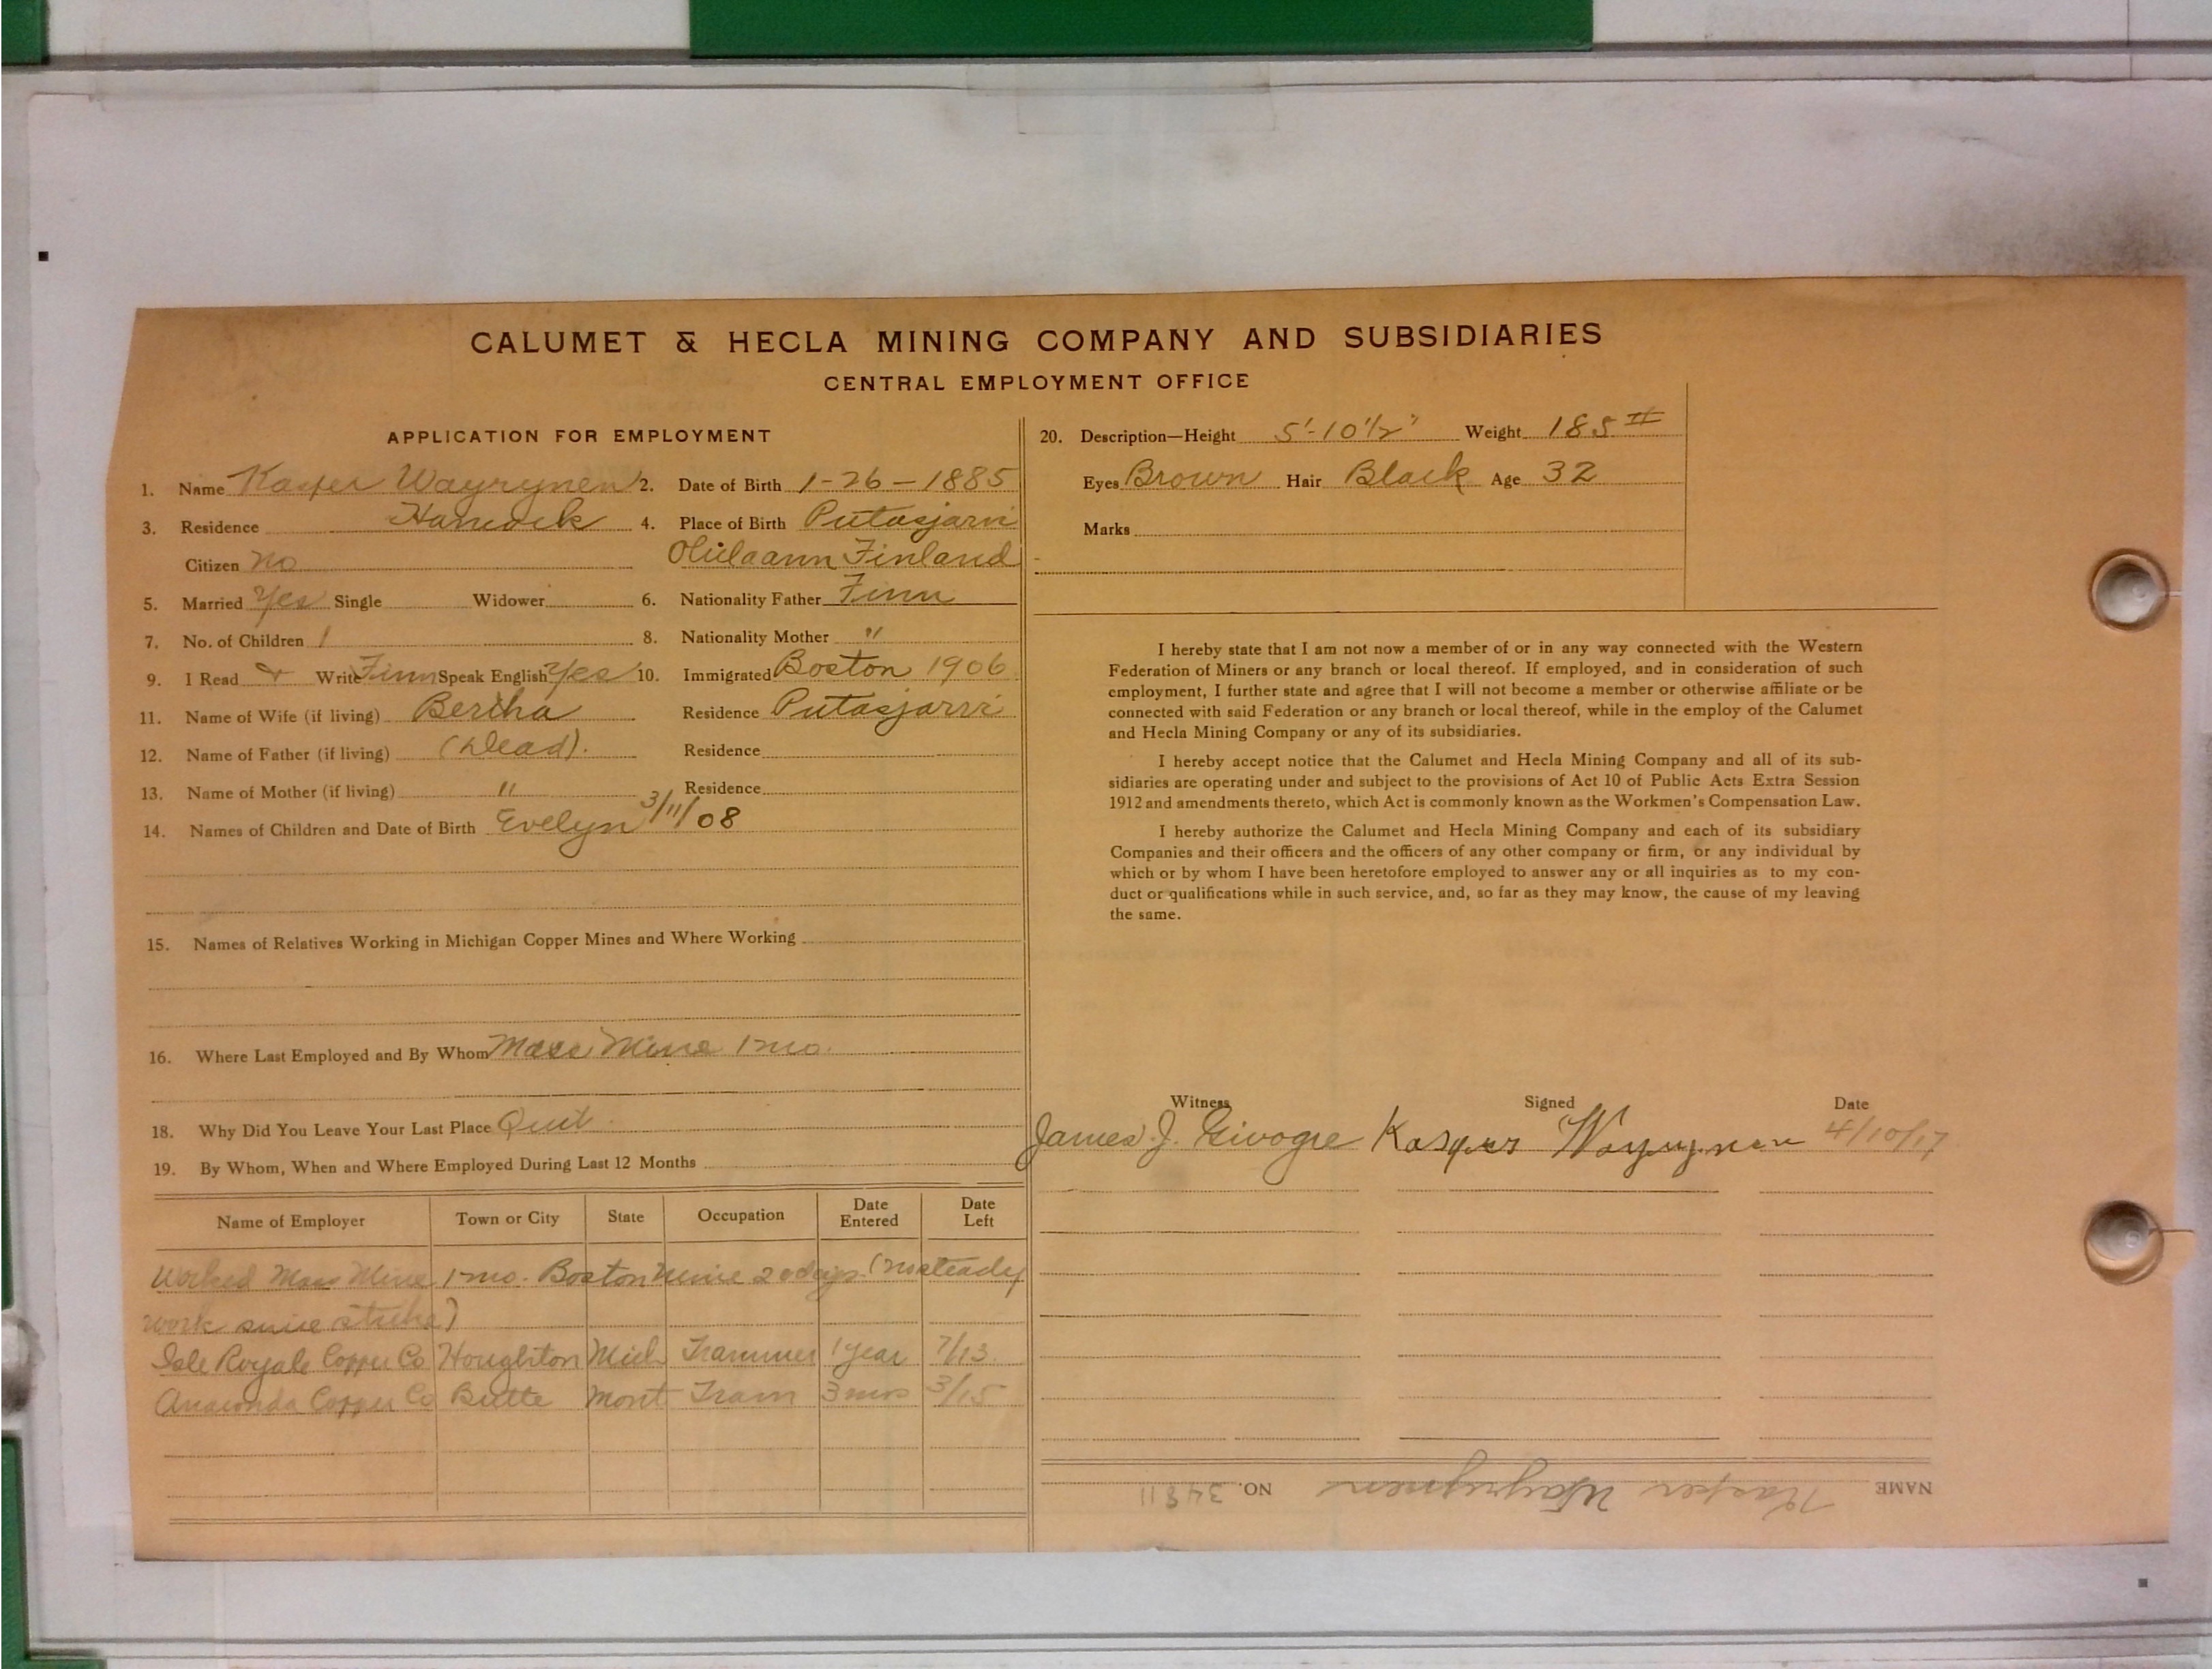 CALUMET & HECLA MINING COMPANY AND SUBSIDIARIES
CENTRAL EMPLOYMENT OFFICE
APPLICATION FOR EMPLOYMENT
1. Name Kasper Wayrynen 2. Date of Birth 1-26-1885
3. Residence Hancock 4. Place of Birth Putasjarvi
Citizen No Olulaann Finland
5. Married Yes Single Widower 6. Nationality Father Finn
7. No. of Children 1 8. Nationality Mother "
9. I Read & Write Finn Speak English Yes 10. Immigrated Boston 1906
11. Name of Wife (if living) Bertha Residence Putasjarvi
12. Name of Father (if living) (Dead). Residence
13. Name of Mother (if living) " Residence
14. Names of Children and Date of Birth Evelyn 3/11/08
15. Names of Relatives Working in Michigan Copper Mines and Where Working
16. Where Last Employed and By Whom Mass Mine 1 mo.
18. Why Did You Leave Your Last Place Quit.
19. By Whom, When and Where Employed During Last 12 Months
Name of Employer Town or City State Occupation Date Entered Date Left
Worked Mass Mine 1 mo. Boston Mine 20 days. (no steady
work since strike)
Isle Royale Copper Co Houghton Mich Trammer 1 year 7/13
Anaconda Copper Co Butte Mont Tram 3 mos 3/15
20. Description—Height 5'-10 1/2" Weight 185 #
Eyes Brown Hair Black Age 32
Marks
I hereby state that I am not now a member of or in any way connected with the Western
Federation of Miners or any branch or local thereof. If employed, and in consideration of such
employment, I further state and agree that I will not become a member or otherwise affiliate or be
connected with said Federation or any branch or local thereof, while in the employ of the Calumet
and Hecla Mining Company or any of its subsidiaries.
I hereby accept notice that the Calumet and Hecla Mining Company and all of its sub-
sidiaries are operating under and subject to the provisions of Act 10 of Public Acts Extra Session
1912 and amendments thereto, which Act is commonly known as the Workmen's Compensation Law.
I hereby authorize the Calumet and Hecla Mining Company and each of its subsidiary
Companies and their officers and the officers of any other company or firm, or any individual by
which or by whom I have been heretofore employed to answer any or all inquiries as to my con-
duct or qualifications while in such service, and, so far as they may know, the cause of my leaving
the same.
Witness Signed Date
James J. Kasper 4/10/17
NAME Kasper Wayrynen NO. 34811